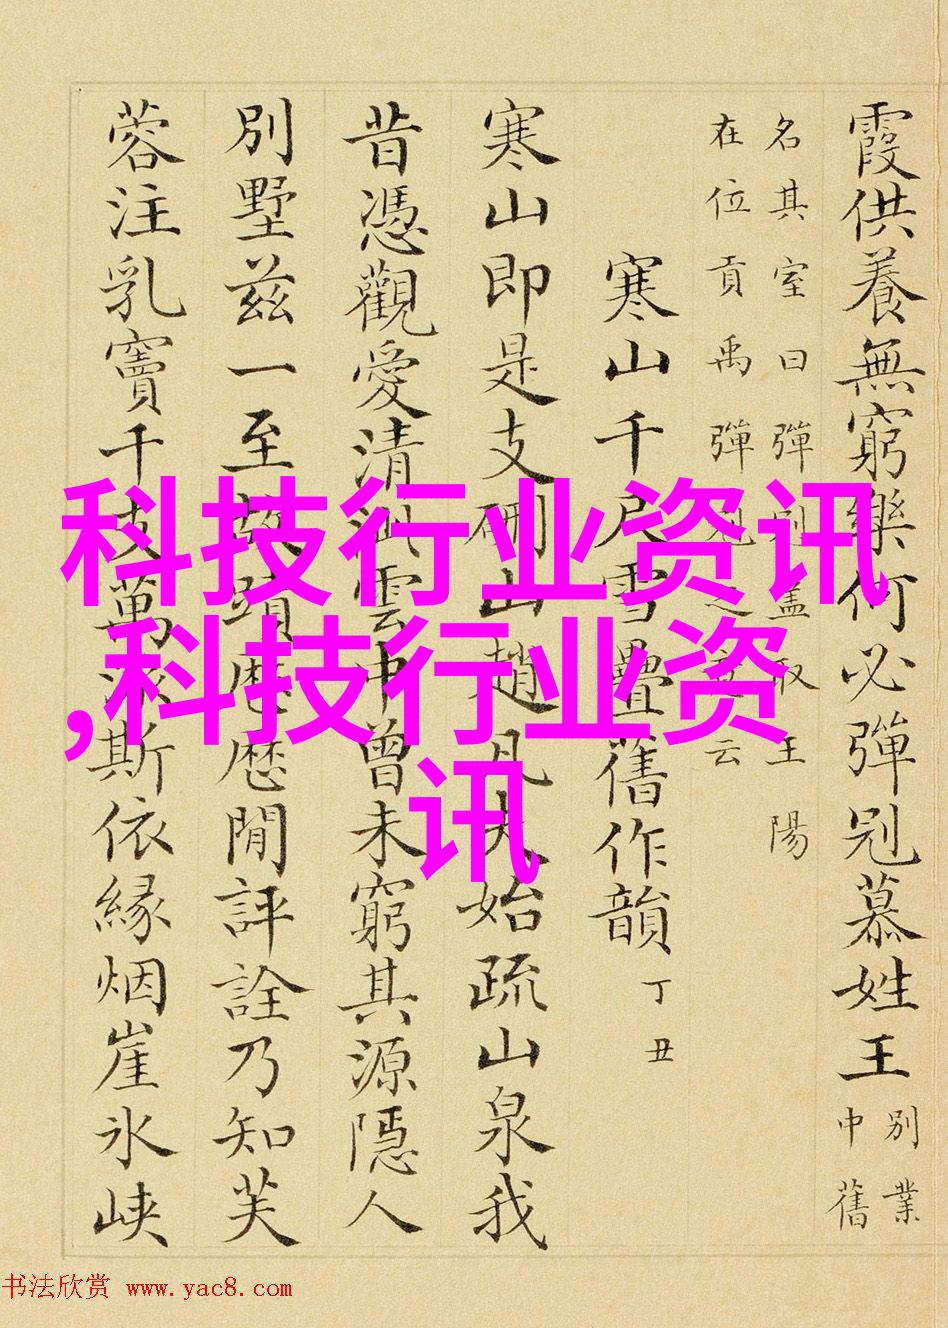 霞供養無窮樂何必彈冠慕姓王
別業
中舊
名其室曰彈冠蓋取王陽
在位貢禹彈冠之意云
寒山千尺雪疊舊作韻
丁丑
寒山即是支硎山趙凡夫始疏山泉我
昔憑觀愛清泚雲中曾未窮其源隱人
別墅茲一至故蹟歷歷閒評詮乃知芙
蓉注乳竇千支萬派斯依緣烟崖氷峽
科技行业资讯
,科技行业资
讯
书法欣赏 www.yac8.com